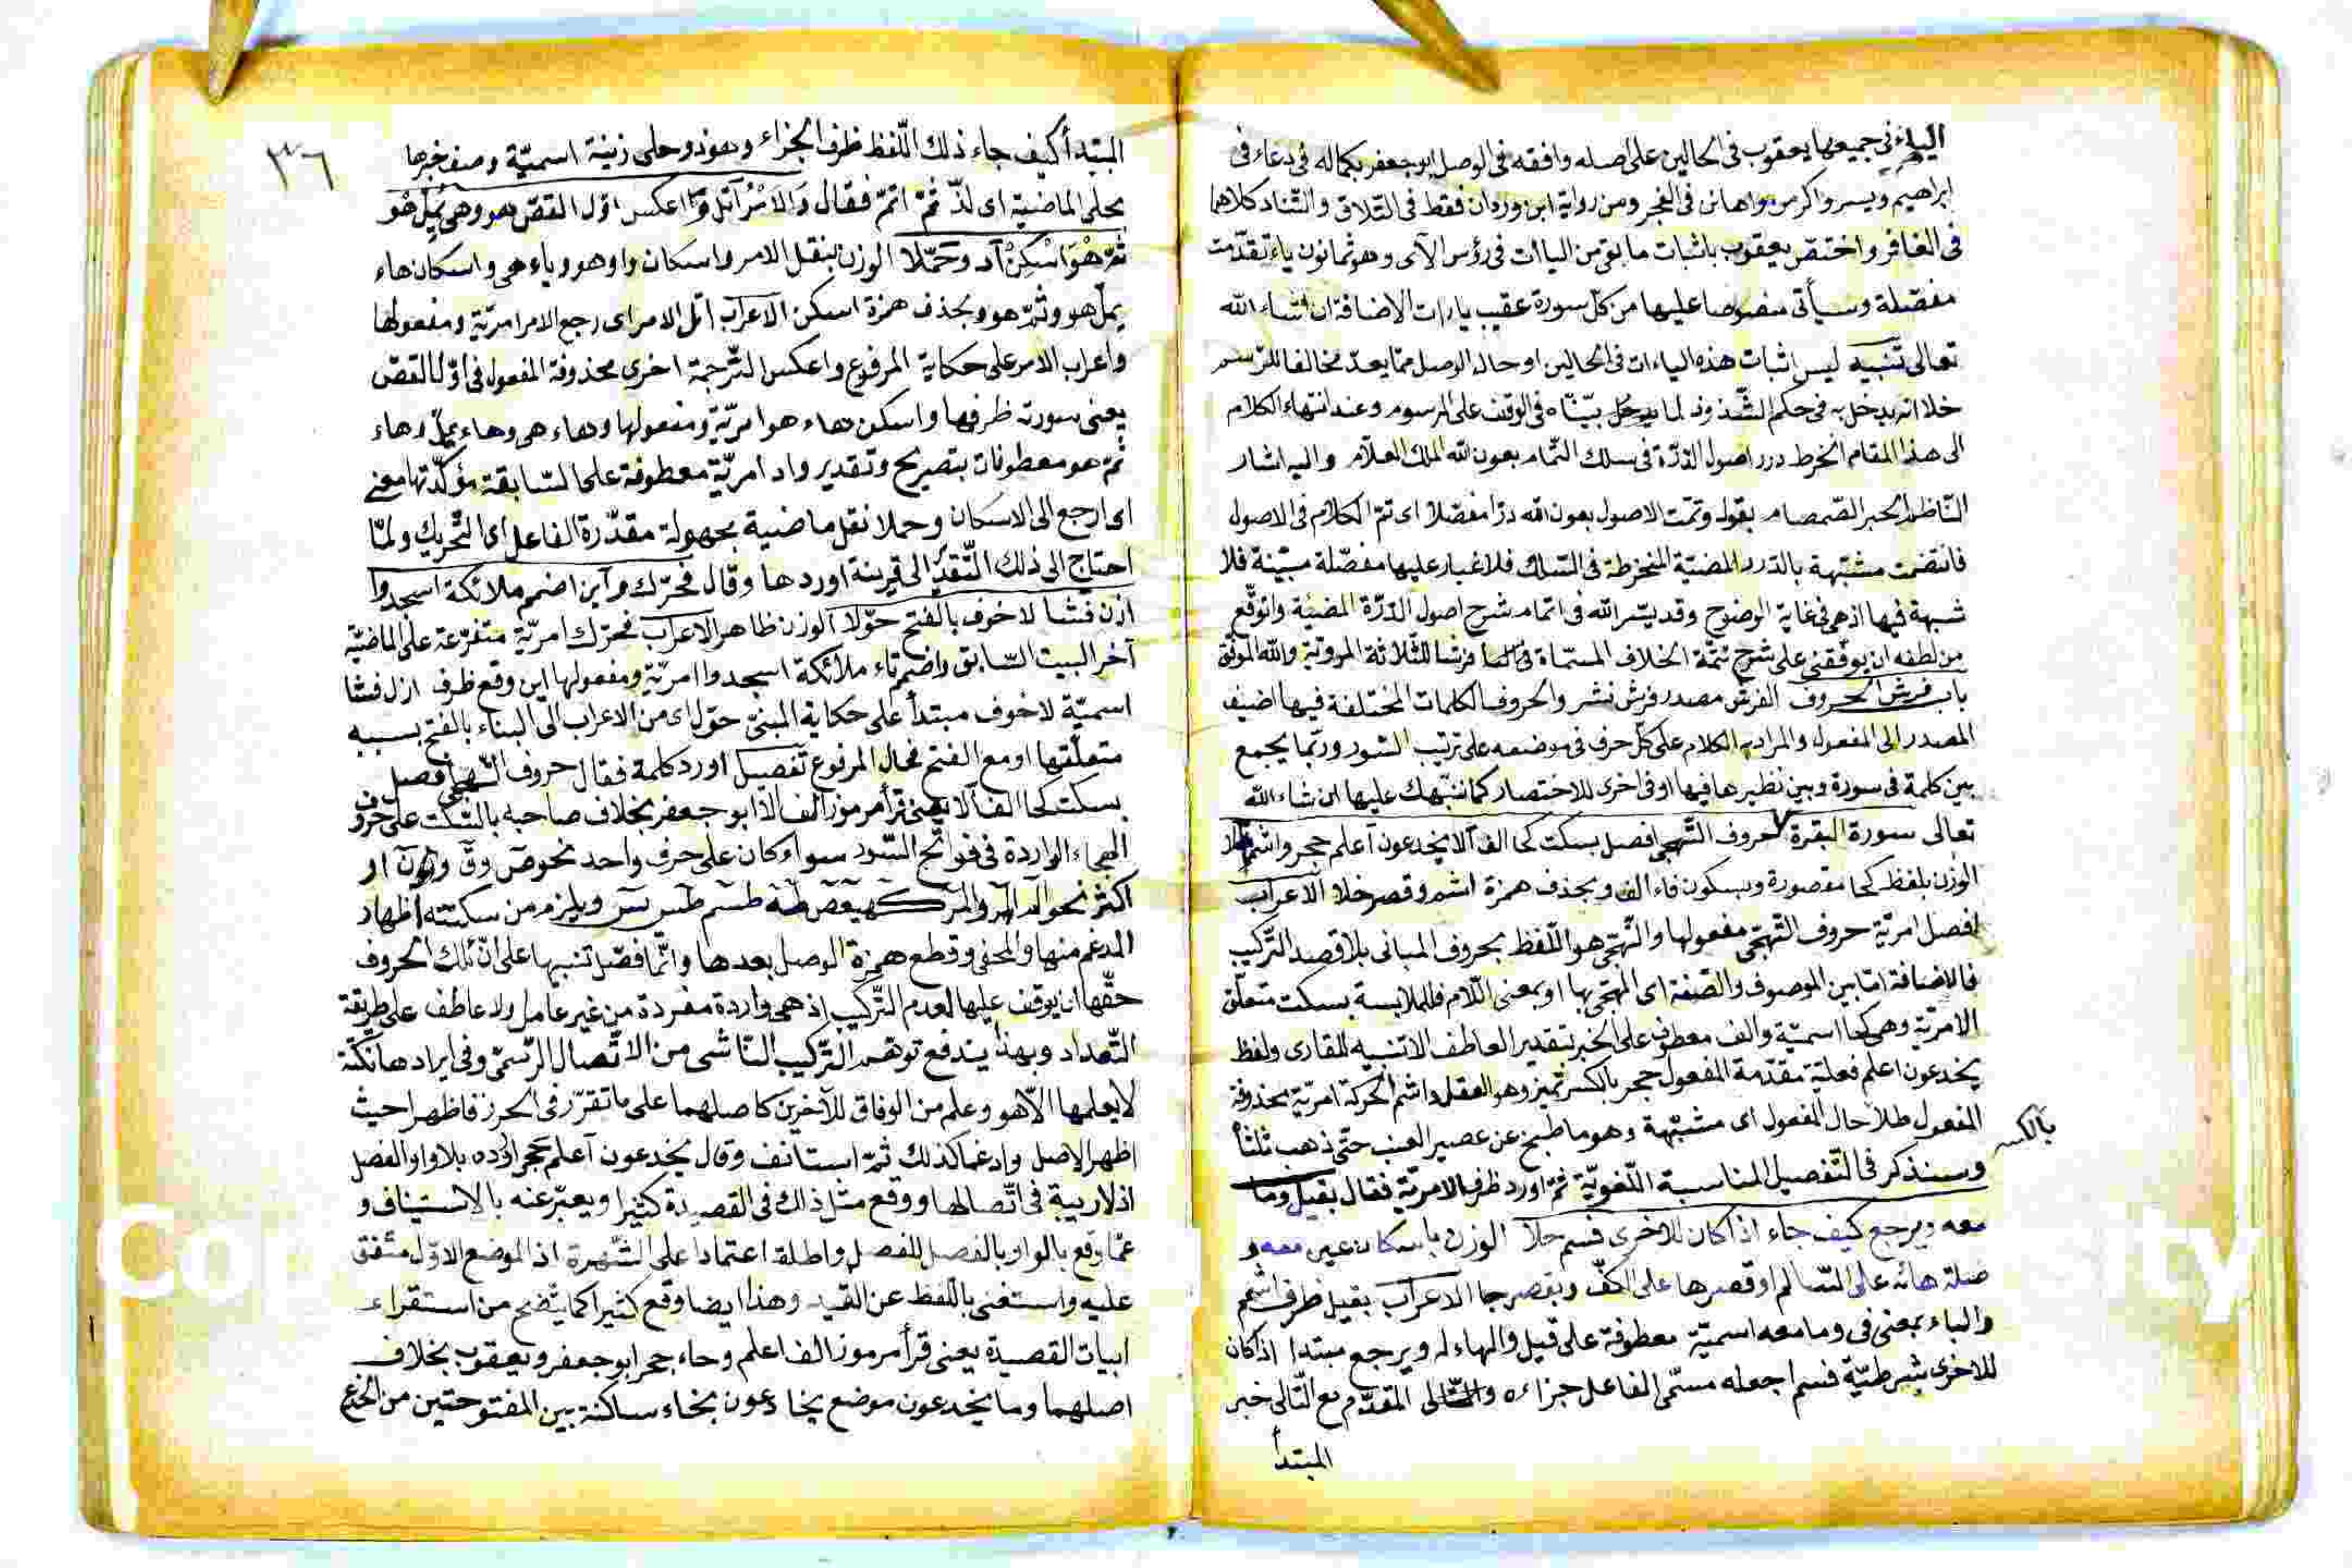 الياء في جميعها يعقوب في الحالين على اصله وافقه في الوصل ابو جعفر بكماله في دعاء في
ابراهيم ويسر واكرمن واهانن في الفجر ومن رواية ابن وردان فقط في التلاق والتناد كلاهما
في الغافر واختص يعقوب باثبات ما بقى من الياات في رؤس الآى وهو ثمانون ياء تقدمت
مفصلة وسيأتى منصوصا عليها من كل سورة عقيب ياءات الاضافة ان شاء الله
تعالى تنبيه ليس اثبات هذه الياءات في الحالين او حال الوصل مما يعد مخالفا للرسم
خلا انه يدخل به في حكم الشذوذ لما يدخل بيناه في الوقف على المرسوم وعند انتهاء الكلام
الى هذا المقام انخرط درر اصول الدرة في سلك التمام بعون الله الملك العلام واليه اشار
الناظم الحبر الصمصام بقوله وتمت الاصول بعون الله درا مفصلا اى تم الكلام في الاصول
فانتضمت مشبهة بالدرر المضية المنخرطة في السلك فلا غبار عليها مفصلة مبينة فلا
شبهة فيها اذ هي في غاية الوضوح وقد يسر الله في اتمام شرح اصول الدرة المضيئة واتوقع
من لطفه ان يوفقنى على شرح تتمة الخلاف المسماة فرشا للثلاثة المروية والله الموفق
باب فرش الحروف الفرش مصدر فرش نشر والحروف الكلمات المختلفة فيها اضيف
المصدر الى المفعول والمراد به الكلام على كل حرف في موضعه على ترتيب السور وربما يجمع
بين كلمة في سورة وبين نظيرها فيها او في اخرى للاختصار كما ننبهك عليها ان شاء الله
تعالى سورة البقرة حروف التهجى افصل بسكت كحا الف الا يخدعون اعلم حجر واشمم طلا
الوزن بلفظ كحا مقصورة وبسكون فاء الف وبحذف همزة اشمم وقصر طلا الاعراب
افصل امرية حروف التهجى مفعولها والتهجى هو التلفظ بحروف المبانى بلا قصد التركيب
فالاضافة اما بين الموصوف والصفة اى المتهجى بها او بمعنى اللام فللملابسة بسكت متعلق
الامرية وهى كحا اسمية والف معطوف على الخبر بتقدير العاطف الا تنبيه للقارى ولفظ
يخدعون اعلم فعلية مقدمة المفعول حجر بالكسر تميز وهو العقل واشم الحركة امرية محذوفة
المفعول طلا حال المفعول اى مشبهة وهو ما طبخ عن عصير العنب حتى ذهب ثلثا
بالكسر
وسنذكر في التفصيل المناسبة اللغوية ثم اورد ظرف الامرية فقال بقيل وما
معه ويرجع كيف جاء اذا كان للاخرى فسم حلا الوزن باسكان عين معه و
صلة هائه على السالم او قصرها على الكف وبقصر جا الاعراب بقيل ظرف اشمم
والباء بمعنى في وما معه اسمية معطوفة على قيل والهاء له ويرجع مبتدا اذ كان
للاخرى شرطية فسم اجعله مسمى الفاعل جزاءه والتالى المقدم مع التالى خبر
المبتدأ
٣٦
المبتدأ كيف جاء ذلك اللفظ ظرف الجزاء وهو ذو حلى زينة اسمية وصف خبرها
بحلى الماضية اى لذ ثم اتم فقال والامر اتل واعكس اول القص هو وهى يمل هو
ثم هو اسكن اد وحملا الوزن بنقل الامر واسكان واو هو وياء هى واسكان هاء
يمل هو وثم هو وبحذف همزة اسكن الاعراب اتل الامر اى رجع الامر امرية ومفعولها
واعراب الامر على حكاية المرفوع واعكس الترجمة اخرى محذوفة المفعول في اول القص
يعنى سورته ظرفها واسكن هاء هو امرية ومفعولها وهاء هى وهاء يمل وهاء
ثم هو معطوفات بتصريح وتقدير واد امرية معطوفة على السابقة مؤكدتها معنى
اى ارجع الى الاسكان وحملا نقل ماضية مجهولة مقدرة الفاعل اى التحريك ولما
احتاج الى ذلك التقدير الى قرينة اوردها وقال فحرك واين اضمم ملائكة اسجدوا
ازل فشا لا خوف بالفتح حولا الوزن ظاهر الاعراب فحرك امرية متفرعة على الماضية
آخر البيت السابق واضمم تاء ملائكة اسجدوا امرية ومفعولها اين وقع ظرف ازل فشا
اسمية لا خوف مبتدأ على حكاية المبنى حول اى من الاعراب الى البناء بالفتح بسببه
متعلقها او مع الفتح فحال المرفوع تفصيل اورد كلمة فقال حروف التهجى افصل
بسكت كحا الف الا يعنى قرأ مرموز الف الا ابو جعفر بخلاف صاحبه بالسكت على حروف
الهجاء الواردة في فواتح السور سواء كان على حرف واحد نحو ص وق ون او
اكثر نحو الم الر والمر كهيعص طه طسم طس يس ويلزم من سكته اظهار
المدغم منها والمخفى وقطع همزة الوصل بعدها وانما فصل تنبيها على ان تلك الحروف
حقها ان يوقف عليها لعدم التركيب اذ هى واردة مفردة من غير عامل ولا عاطف على طريقة
التعداد وبهذا يندفع توهم التركيب الناشى من الاتصال الرسمى وفي ايرادها نكتة
لا يعلمها الا هو وعلم من الوفاق للآخرين كاصلهما على ما تقرر في الحرز فاظهرا حيث
اظهر الاصل وادغما كذلك ثم استانف وقال يخدعون اعلم حجر اورده بلا واو الفصل
اذ لا ريبة في اتصالها ووقع مثل ذلك في القصيدة كثيرا ويعبر عنه بالاستيناف و
عما وقع بالواو بالفصل للفصل واطلقه اعتمادا على الشهرة اذ الموضع الاول متفق
عليه واستغنى باللفظ عن القيد وهذا ايضا وقع كثيرا كما يتضح من استقراء
ابيات القصيدة يعنى قرأ مرموز الف اعلم وحاء حجر ابو جعفر ويعقوب بخلاف
اصلهما وما يخدعون موضع يخادعون بخاء ساكنة بين المفتوحتين من الخدع